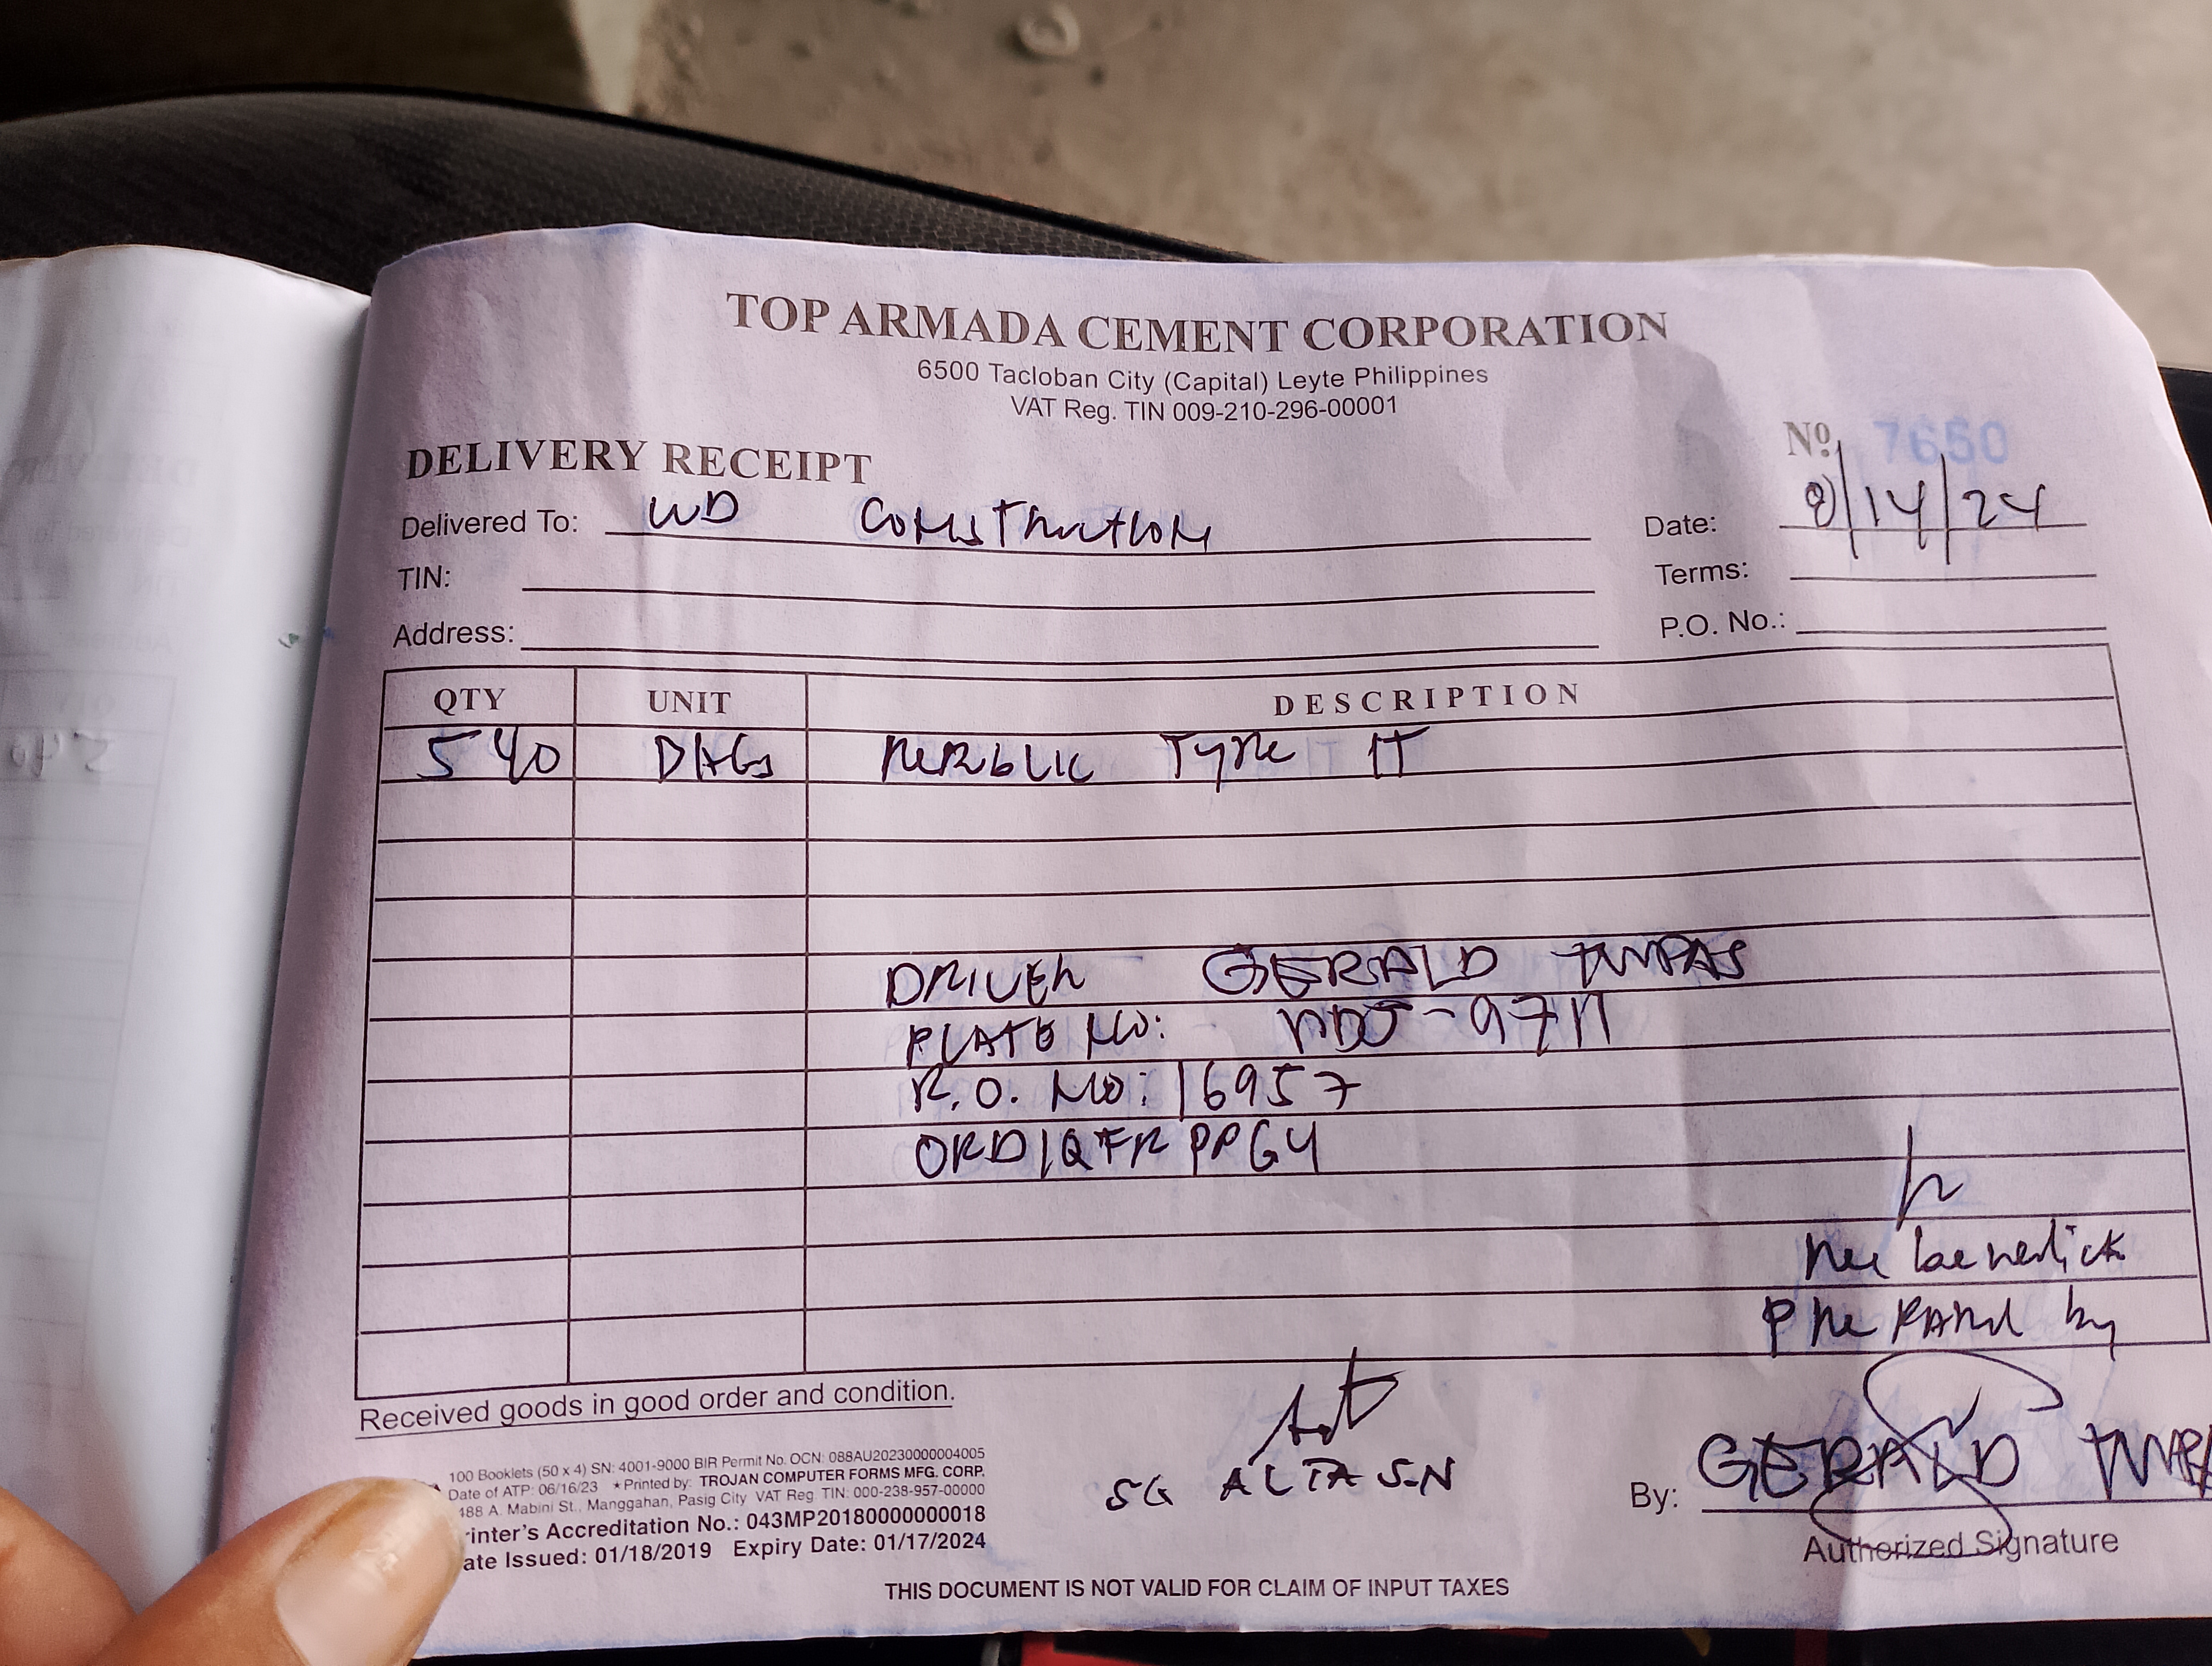 TOP ARMADA CEMENT CORPORATION
6500 Tacloban City (Capital) Leyte Philippines
VAT Reg. TIN 009-210-296-00001
DELIVERY RECEIPT
Nº 7650
Delivered To: WD Construction
Date: 8/14/24
TIN:
Terms:
Address:
P.O. No.:
QTY UNIT DESCRIPTION
540 BAGS REPUBLIC TYPE 1T
DRIVER - GERALD TUPAS
PLATE NO: - NDJ-9711
R.O. NO: 16957
ORD1QFR PPG4
benedick
Prepared by
Received goods in good order and condition.
SG ALTA S-N
By: GERALD
Authorized Signature
100 Booklets (50 x 4) SN: 4001-9000 BIR Permit No. OCN: 088AU20230000004005
Date of ATP: 06/16/23 ★Printed by: TROJAN COMPUTER FORMS MFG. CORP.
488 A. Mabini St., Manggahan, Pasig City VAT Reg. TIN: 000-238-957-00000
rinter's Accreditation No.: 043MP20180000000018
ate Issued: 01/18/2019 Expiry Date: 01/17/2024
THIS DOCUMENT IS NOT VALID FOR CLAIM OF INPUT TAXES